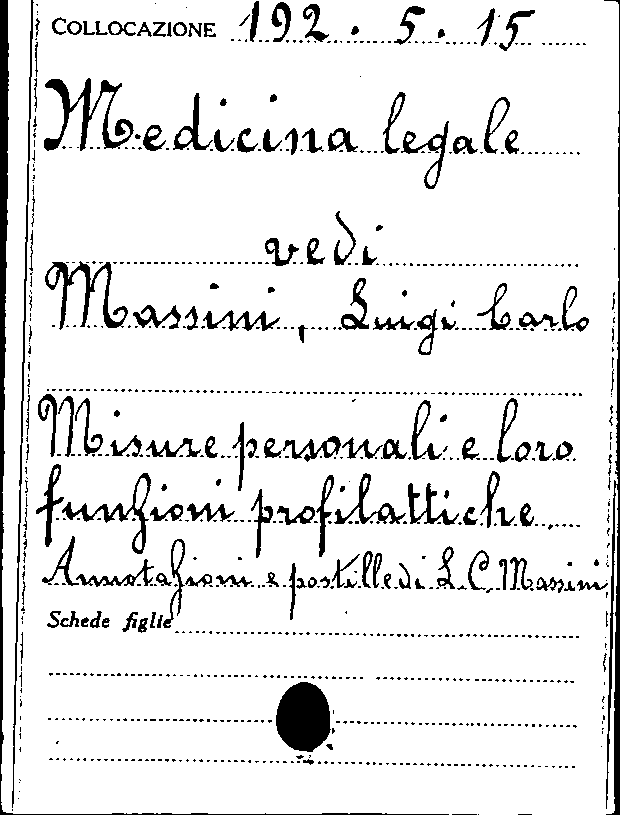 COLLOCAZIONE 192. 5. 15
Medicina legale
vedi
Massini, Luigi Carlo
Misure personali e loro
funzioni profilattiche.
Annotazioni e postille di L. C. Massini
Schede figlie